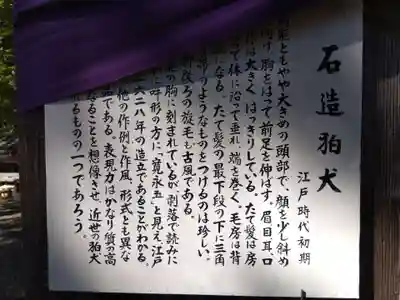 石造狛犬
江戸時代初期
ともやや大きめの頭部で、顔を少し斜め
向け、胸をはって前足を伸ばす。眉目耳口
は大きく、はっきりしている。たて髪は房
って体に沿って垂れ、端を巻く。毛房は背
になる。たて髪の最下段の下に三角
のようなものをつけるのは珍しい。
後ろの旋毛も古風である。
の胸に刻まれているが剥落で読みに
呼形の方に「寛永五」と見え、江戸
六二八年の造立であることがわかる。
他の作例と作風、形式とも異な
品である。表現力はかなり質の高
なることを想像させ、近世の狛犬
るものの一つであろう。